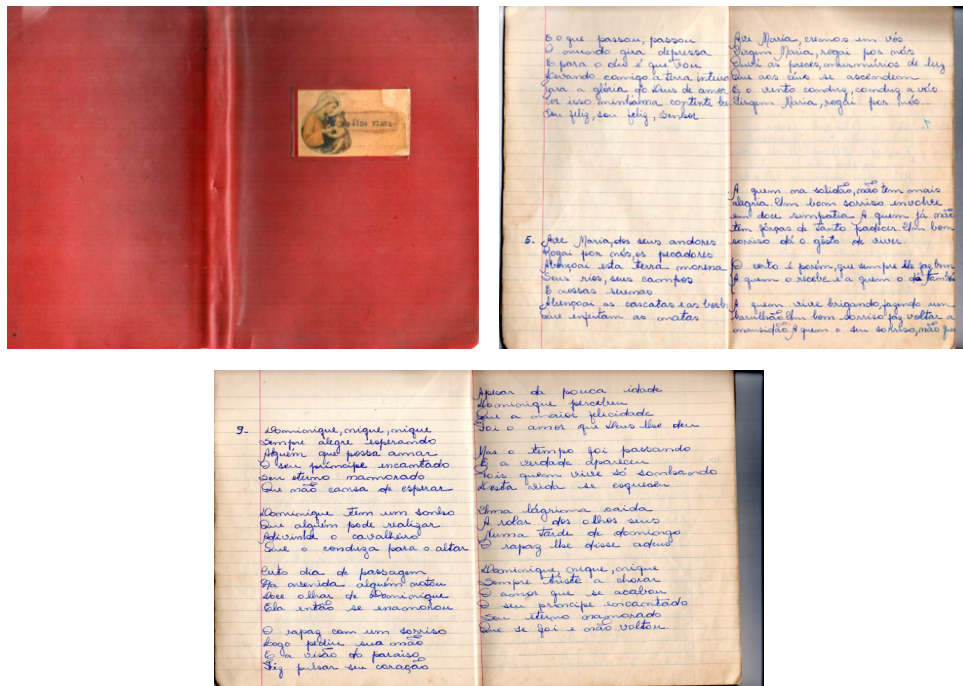 Vista
E o que passou, passou
O mundo gira depressa
E para o céu é que vou
Levando comigo a terra inteira
Para a glória do Deus de amor
Por isso minhalma contente
Sou feliz, sou feliz, Senhor.
5. Ave Maria, dos seus andores
Rogai por nós, os pecadores
Abençoai esta terra morena
Seus rios, seus campos
E nossas serenas
Abençoai as cascatas e as borb
Que enfeitam as matas
Ave Maria, cremos em vós
Virgem Maria, rogai por nós
Ouvi as preces, murmúrios de luz
Que aos céus se ascendem
E o vento conduz, conduz a vós
Virgem Maria, rogai por nós...
A quem na solidão, não tem mais
alegria. Um bom sorriso envolve
em doce simpatia. A quem já não
tem fôrças de tanto padecer. Um bom
sorriso dá o gôsto de viver.
O certo é porém, que sempre êle faz bem
A quem o recebe e a quem o dá também
A quem vive brigando, fazendo um
barulhão. Um bom sorriso faz voltar a
mansidão. A quem o seu sorriso, não
9. Dominique, nique, nique
Sempre alegre esperando
Alguém que possa amar
O seu príncipe encantado
Seu eterno namorado
Que não cansa de esperar
Dominique tem um sonho
Que alguém pode realizar
Adivinhe o cavalheiro
Que o conduza para o altar
Certo dia de passagem
Na avenida alguém notou
Doce olhar de Dominique
Ela então se enamorou
O rapaz com um sorriso
Logo pediu sua mão
E a visão do paraíso
Fez pulsar seu coração
Apesar da pouca idade
Dominique percebeu
Que a maior felicidade
Foi o amor que Deus lhe deu
Mas o tempo foi passando
E a verdade apareceu
Pois quem vive só sonhando
Desta vida se esqueceu
Uma lágrima caida
A rolar dos olhos seus
Numa tarde de domingo
O rapaz lhe disse adeus
Dominique, nique, nique
Sempre triste a chorar
O amor que se acabou
O seu príncipe encantado
Seu eterno namorado
Que se foi e não voltou.